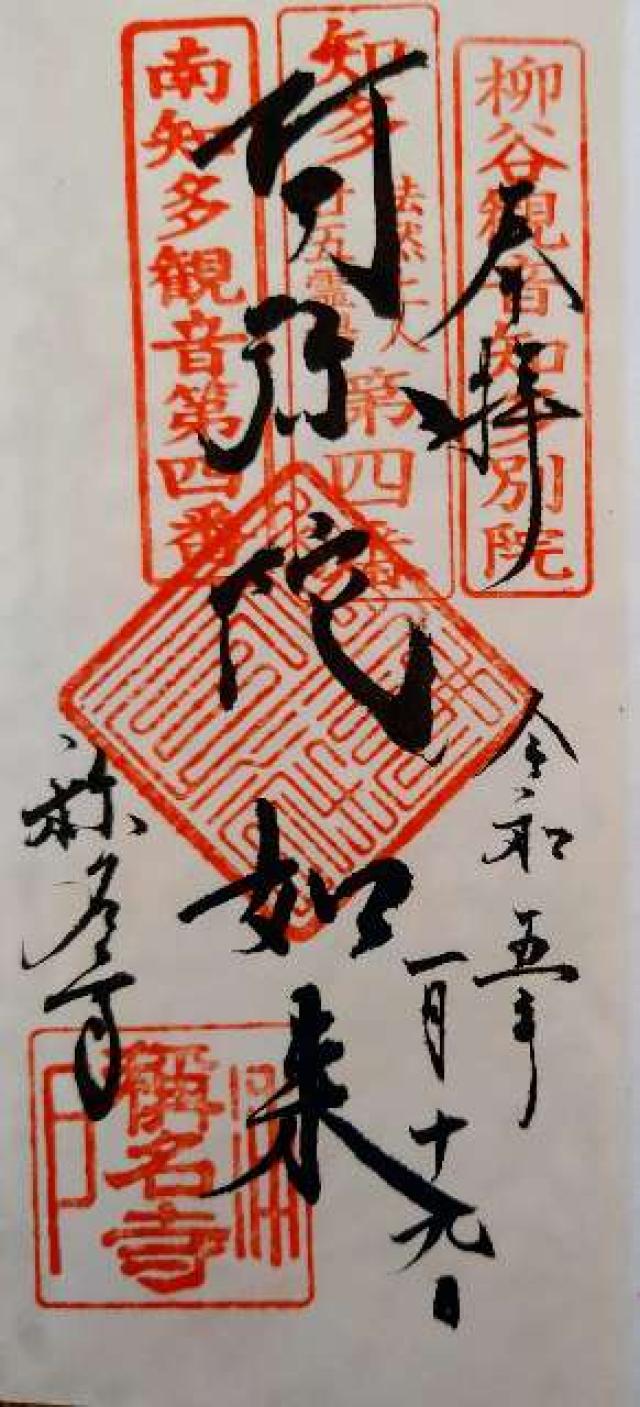 柳谷観音知多別院
奉拝
令和五年
一月十九日
知多
法然上人
廿五霊場
第四番
阿弥陀如来
南知多観音第四番
称名寺
稱名寺